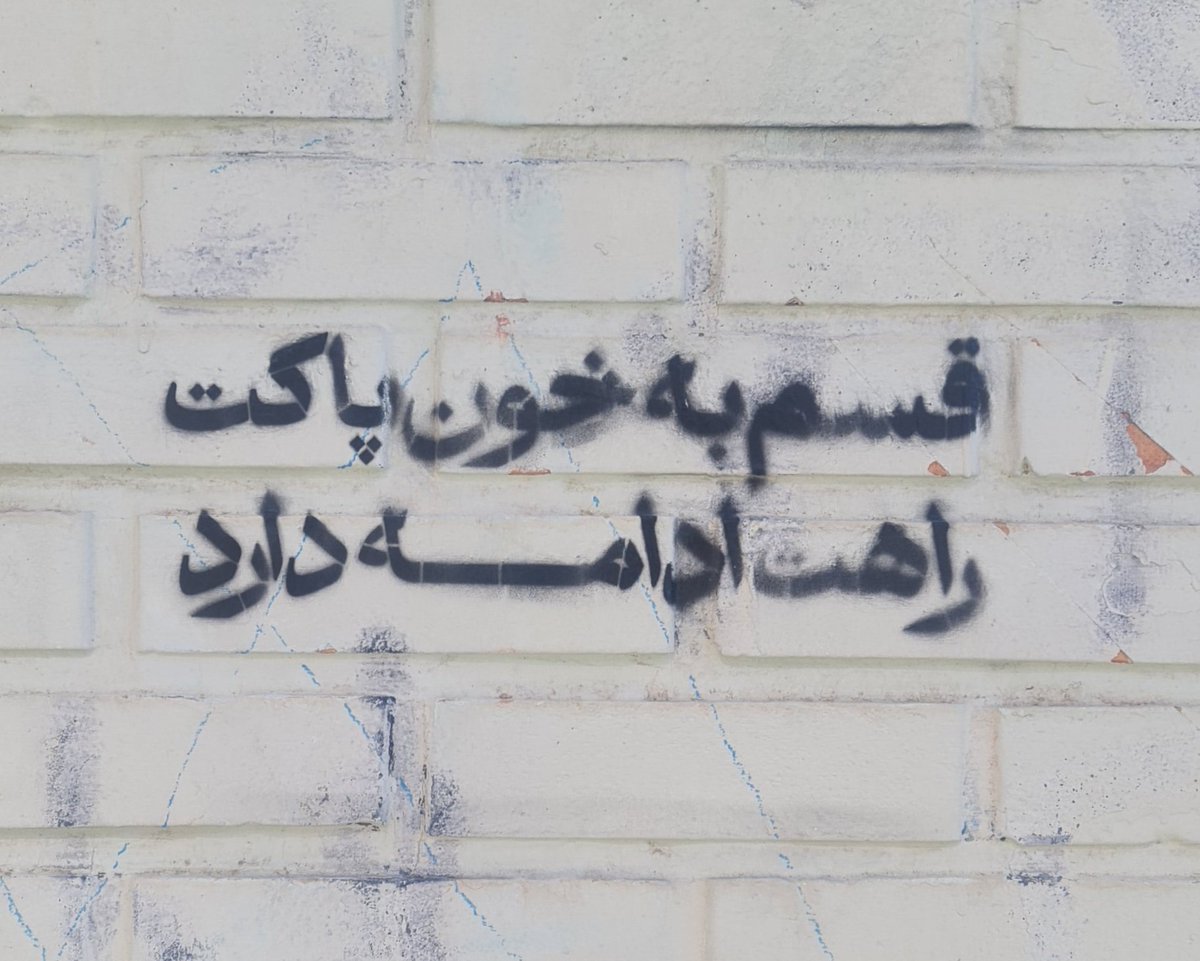 قسم به خون پاکت
راهت ادامه دارد